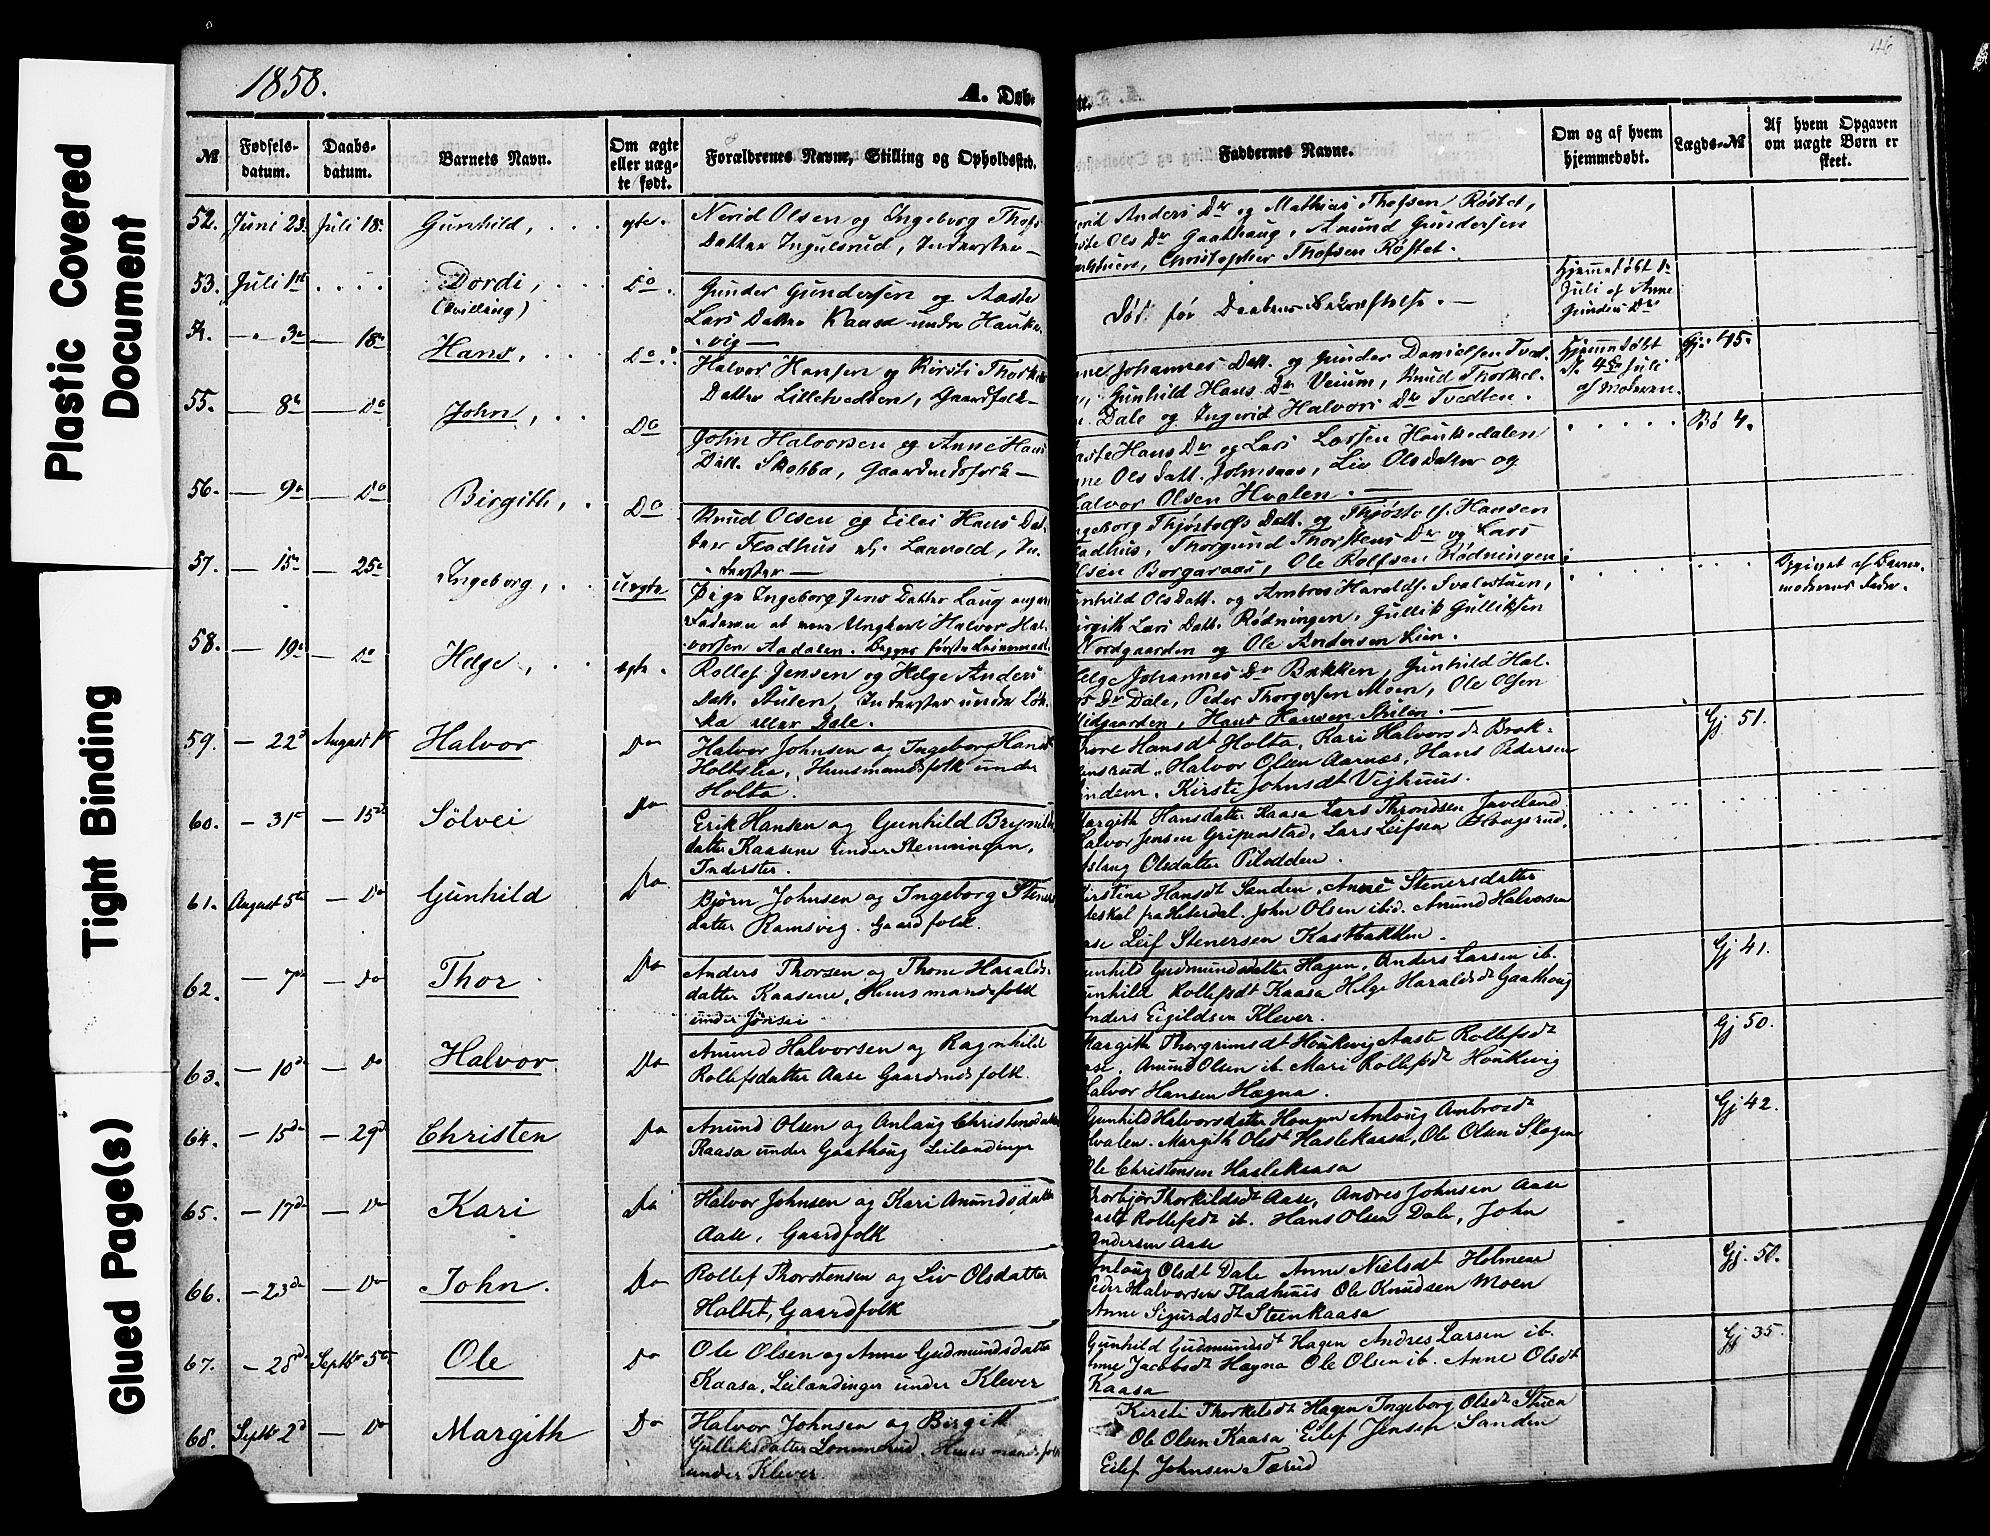 Plastic Covered
Document
Tight Binding
Glued Page(s)
1858.
A. Døb-
te.
116
№
Fødsels-
datum.
Daabs-
datum.
Barnets Navn.
Om ægte
eller uæg-
te født.
Forældrenes Navne, Stilling og Opholdssted.
Faddernes Navne.
Om og af hvem
hjemmedøbt.
Lægds-№
Af hvem Opgaven
om uægte Børn er
skeet.
52. Juni 23. Juli 18. Gunhild, . . . egte.
Nerid Olsen og Ingeborg Thofs
Datter Ingulsrud, Inderster—
Anders Dr og Mathias Thofsen Røstet,
Ols Dr Gaathaug, Amund Gundersen
Christopher Thofsen Røstet.
53. Juli 1st . . . . Dordi, . . . Do.
(Tvilling)
Gunder Gundersen og Aaste
Lars Datter Kaasa under Hauke-
vig—
Død før Daabens Bekræftelse.—
Hjemmedøbt
Juli af Anne
Gunders Dr
54. — 3de — 18de Hans, . . Do.
Halvor Hansen og Kirsti Thorkels
Datter Lilletvedten, Gaardfolk—
Johannes Datt. og Gunder Danielsen Tved-
Gunhild Hans Dr Veium, Knud Thorkel-
Dale og Ingerid Halvors Dr Tvedten.
Hjemmedøbt
4de Juli
af Moderen.
Gj. 45.
55. — 8de — Do John, . . Do
John Halvorsen og Anne Hans
Datt. Skobba, Gaardmdsfolk—
Hans Dr og Lars Larsen Haukedalen
Ols Datt. Johnsaas, Liv Olsdatter og
Halvor Olsen Hvalen.—
Bø 4.
56. — 9de — Do Birgith, . Do
Knud Olsen og Eilei Hans Dat-
ter Fladhus, In-
derster—
Ingeborg Thjøstolfs Datt. og Thjøstolf Hansen
Fladhus, Thorgund Thorstens Dr og Lars
Olsen Borgaraas, Ole Rolfsen Rødningen.
57. — 15de — 25de Ingeborg, . . uegte
Pige Ingeborg Jens Datter Laug angiver
Faderen at være Ungkarl Halvor Hal-
vorsen Aadalen. Begges første Leiermaal
Gunhild Olsdatt. og Ambros Haralds. Svalestuen,
Birgith Lars Datt. Rødningen, Gullik Gulliksen
Nordgaarden og Ole Andersen Lien.
Opgivet af Barne-
moderens Fader.
58. — 19de — Do Helge, . egte
Rollef Jensen og Helge Anders
Datt. Stulen, Inderster under Løk-
ka eller Dale.
Helge Johannes Dr Bakken, Gunhild Hal-
vors Dr Dale, Peder Thorgersen Moen, Ole Olsen
Midgaarden, Hans Hansen Stulen.—
59. — 22de August 1st Halvor Do
Halvor Johnsen og Ingeborg Hansdt
Holtslia, Huusmandsfolk under
Holta.
Thore Hansdt Holta, Kari Halvorsdt Bræk-
Halvor Olsen Aarnæs, Hans Pedersen
Lindem, Kirsti Johnsdt Vighuus.
Gj 51.
60. — 31te — 15de Sølvei Do
Erik Hansen og Gunhild Brynilds
datter Kaasene under Stenningen,
Inderster.
Margith Hansdatter Kaasa Lars Throndsen Juveland
Halvor Jensen Gripenstad, Lars Leifsen Haugsrud,
Aslaug Olsdatter Pilodden.
61. August 5te — Do Gunhild Do
Bjørn Johnsen og Ingeborg Steners
datter Ramsvig. Gaardfolk.
Kirstine Hansdt Sanden, Anne Stenersdatter
fra Hiterdal. John Olsen ibid. Anund Halvorsen
Aase Leif Stenersen Kastbakken.
62. — 7de — Do Thor Do
Anders Thorsen og Thone Haralds-
datter Kaasene, Huusmandsfolk
under Jønsei
Gunhild Gudmundsdatter Hagen, Anders Larsen ib.
Gunhild Rollefsdt Kaasa Helge Haraldsdt Gaathoug
Anders Eigildsen Klever.
Gj 41.
63. — 10de — Do Halvor Do
Anund Halvorsen og Ragnhild
Rollefsdatter Aase Gaardmdsfolk.
Margith Thorgrimsdt Houkvig Aaste Rollefsdt
Aase, Anund Olsen ib. Mari Rollefsdt Houkvig
Halvor Hansen Hægna.
Gj 50.
64. — 15de — 29de Christen Do
Anund Olsen og Anlaug Christensdatter
Kaasa under Gaathoug Leilændinge
Gunhild Halvorsdatter Hougen Anloug Ambrosdt
Hvalen. Margith Olsdt Haslekaasa, Ole Olsen Skogen
Ole Christensen Haslekaasa
Gj 42.
65. — 17de — Do Kari Do
Halvor Johnsen og Kari Anundsdatter
Aase, Gaardfolk
Thorbjør Thorkildsdt Aase, Andres Johnsen Aase
Aaste Rollefsdt ib. Hans Olsen Dale, John
Andersen Aase
66. — 23de — Do John. Do
Rollef Thorstensen og Liv Olsdatter
Haltet, Gaardfolk
Anlaug Olsdt Dale Anne Nielsdt Holmen
Peder Halvorsen Fladhuus Ole Knudsen Moen
Anne Sigurdsdt Steenkaasa
Gj. 50.
67. — 28de Septbr 5te Ole Do
Ole Olsen og Anne Gudmundsdatter
Kaasa, Leilændinger under Klever
Gunhild Gudmundsdt Hagen Andres Larsen ib.
Anne Jacobsdt Hægna Ole Olsen ib. Anne Olsdt
Kaasa
Gj 35.
68. Septbr 2de — Do Margith Do
Halvor Johnsen og Birgith
Gulliksdatter Lonnerud, Huusmandsfolk
under Klever
Kirsti Thorkilsdt Hagen Ingeborg Olsdt Stuen
Ole Olsen Kaasa Eilef Jensen Sanden
Eilef Johnsen Tærud